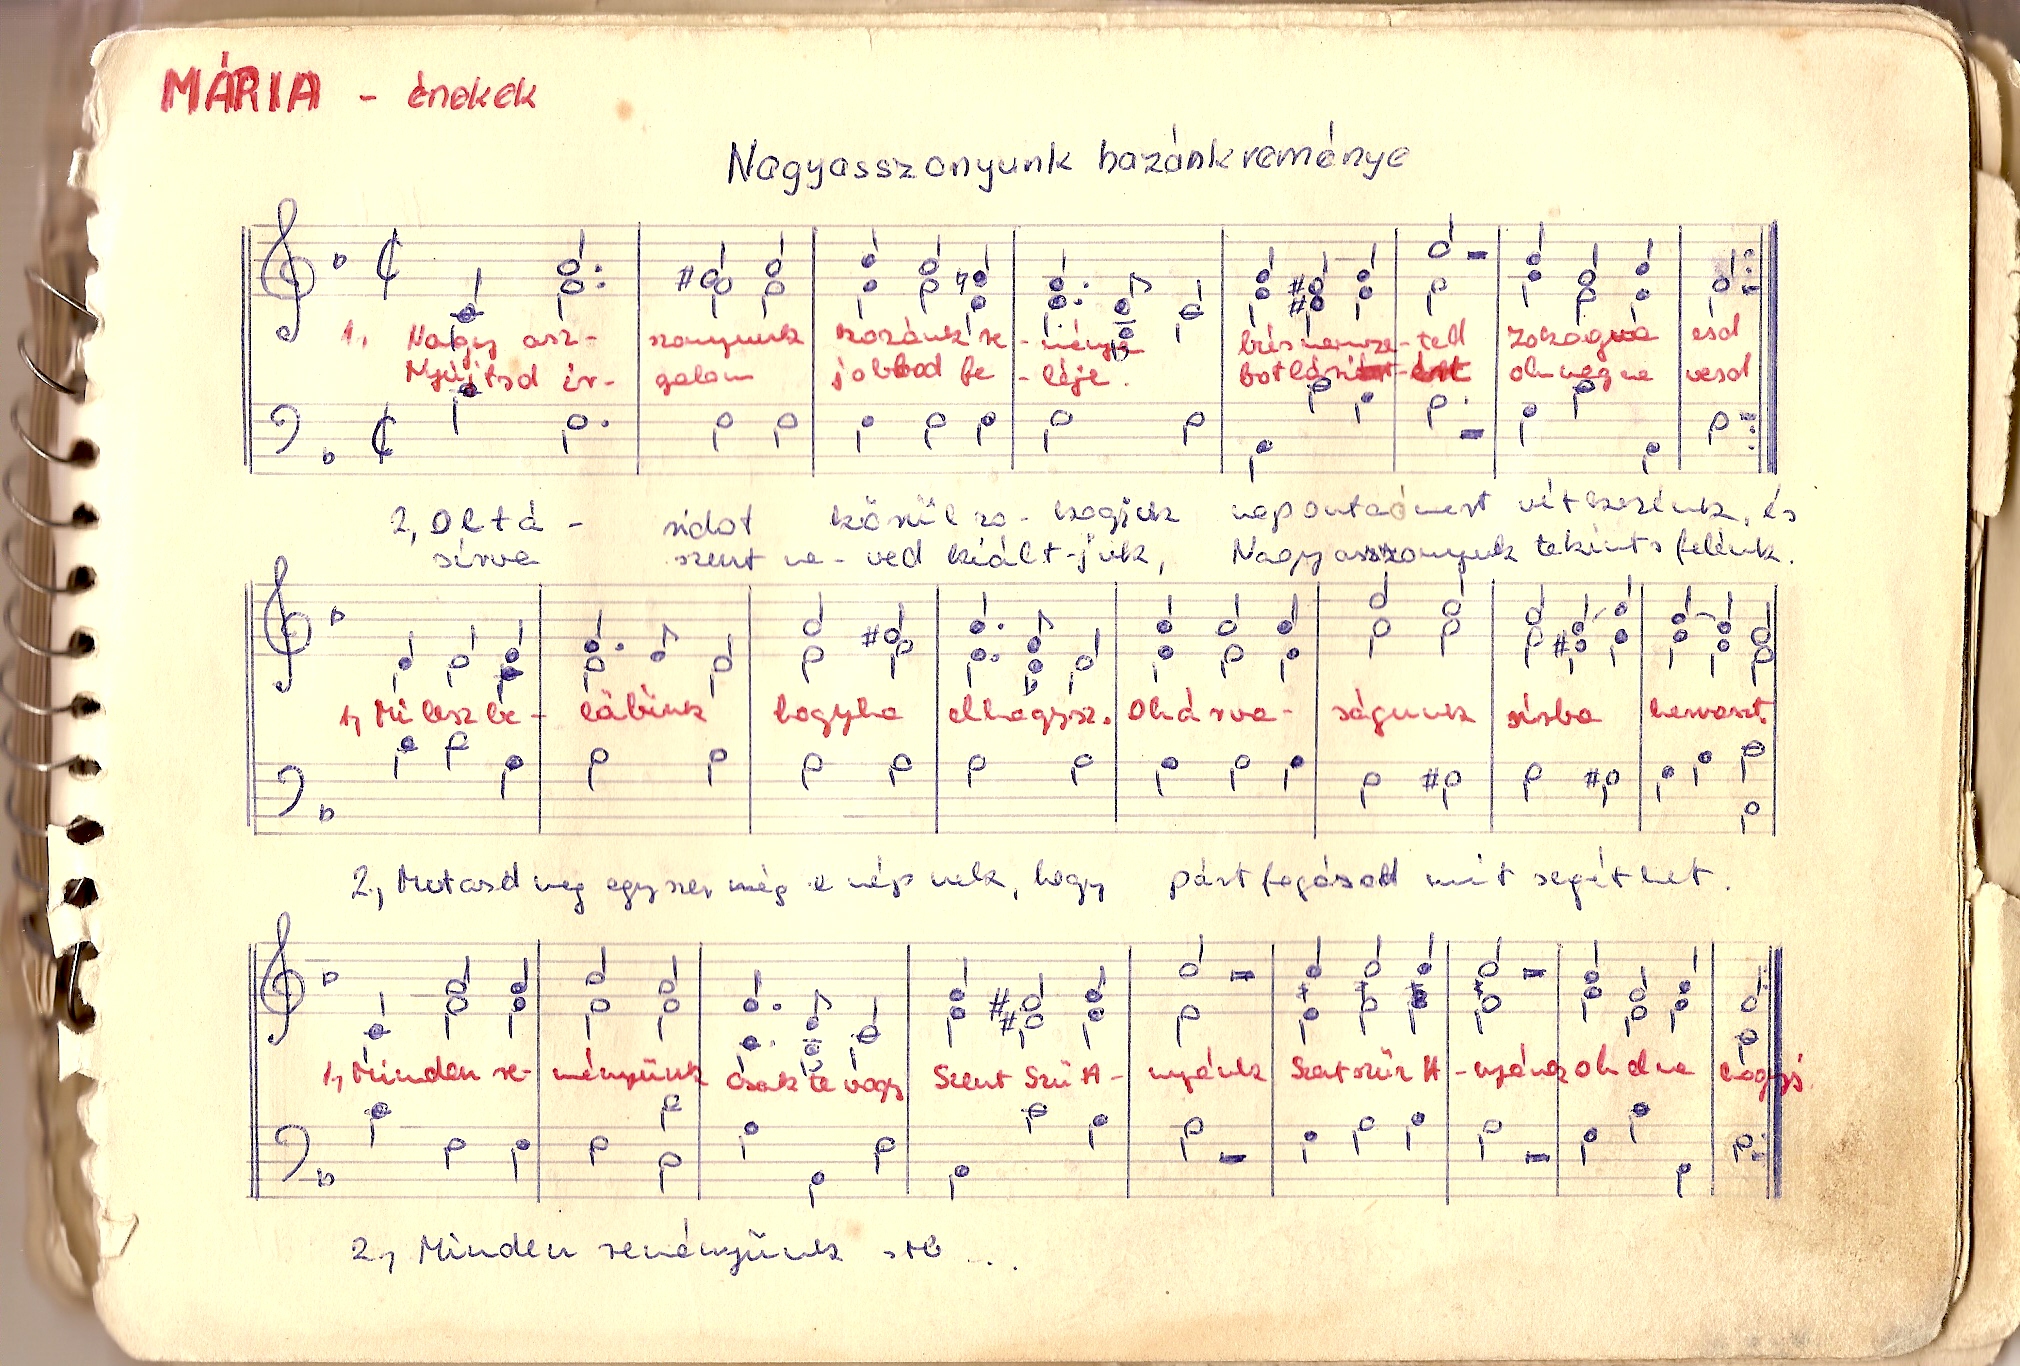 MÁRIA - énekek
Nagyasszonyunk hazánk reménye
1, Nagy asz- szonyunk hazánk re - ménye bús nemze - ted zokogva esd
Nyújtsd ir- galom jobbod fe - léje. oh meg ne vesd
2, Oltá - ridat körül zo - kogjuk naponta mert vétkezénk, és
sírva szent ne - ved kiált-juk, Nagyasszonyunk tekints felénk.
1, Mi lesz be- lőlünk hogyha elhagysz. Oh árva- ságunk sírba hervaszt.
2, Mutasd meg egyszer még e népnek, hogy pártfogásod mit segíthet.
1, Minden re- ményünk csak te vagy Szent Szűz A - nyánk Szent szűz A - nyánk oh el ne hagyj
2, Minden reményünk stb ...